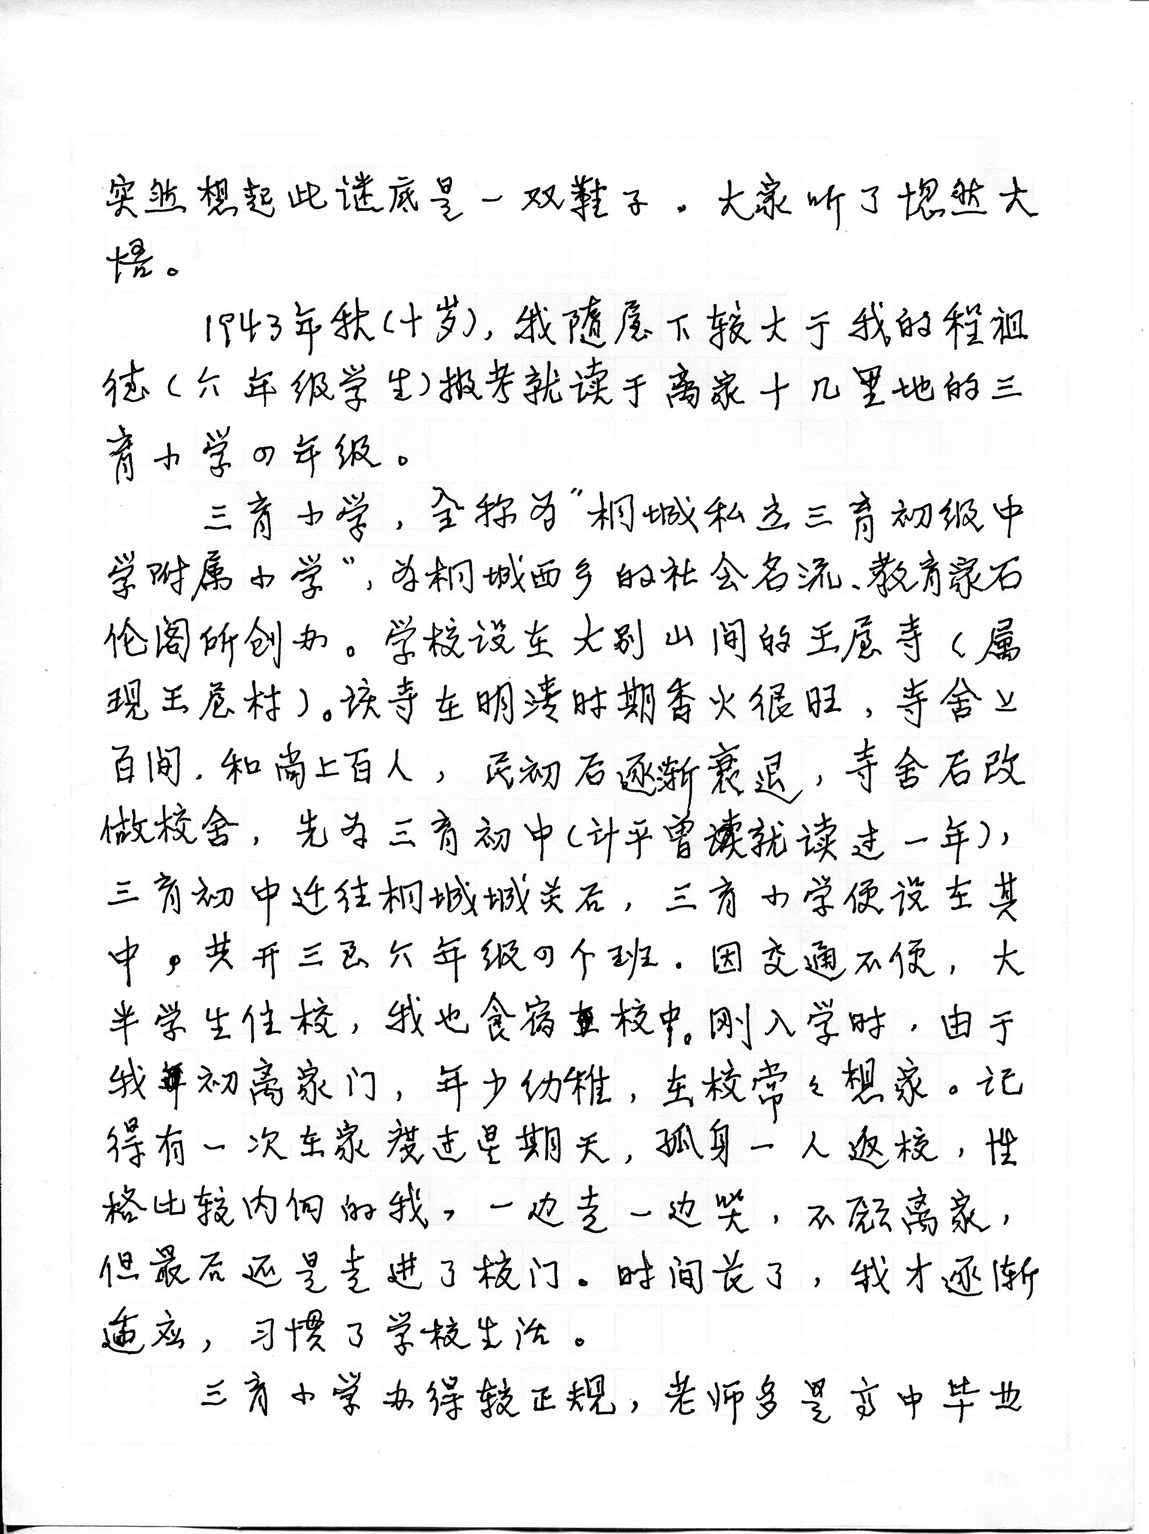 突然想起此谜底是一双鞋子。大家听了恍然大
悟。
1943年秋(十岁),我随屋下较大于我的程祖
德(六年级学生)报考就读于离家十几里地的三
育小学四年级。
三育小学,全称为"桐城私立三育初级中
学附属小学",为桐城西乡的社会名流、教育家石
伦阁所创办。学校设在大别山间的王屋寺(属
现王屋村)。该寺在明清时期香火很旺,寺舍上
百间.和尚上百人,民初后逐渐衰退,寺舍后改
做校舍,先为三育初中(计平曾就读过一年),
三育初中迁往桐城城关后,三育小学便设在其
中,共开三至六年级四个班.因交通不便,大
半学生住校,我也食宿在校中。刚入学时,由于
我初离家门,年少幼稚,在校常々想家。记
得有一次在家度过星期天,孤身一人返校,性
格比较内向的我,一边走一边哭,不愿离家,
但最后还是走进了校门。时间长了,我才逐渐
适应,习惯了学校生活。
三育小学办得较正规,老师多是高中毕业